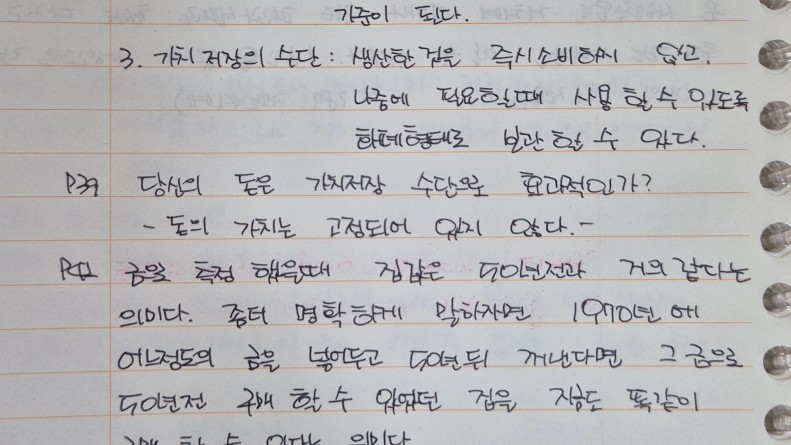 기준이 된다.
3. 가치 저장의 수단 : 생산한 것을 즉시 소비하지 않고,
나중에 필요할때 사용 할 수 있도록
화폐형태로 보관 할 수 있다.
P39 당신의 돈은 가치저장 수단으로 효과적인가?
- 돈의 가치는 고정되어 있지 않다. -
P41 금을 측정 했을때 집값은 50년전과 거의 같다는
의미다. 좀더 명확하게 말하자면 1970년에
어느정도의 금을 넣어두고 50년뒤 꺼낸다면 그 금으로
50년전 구매 할 수 있었던 집을 지금도 똑같이
구매 할 수 있다는 의미다